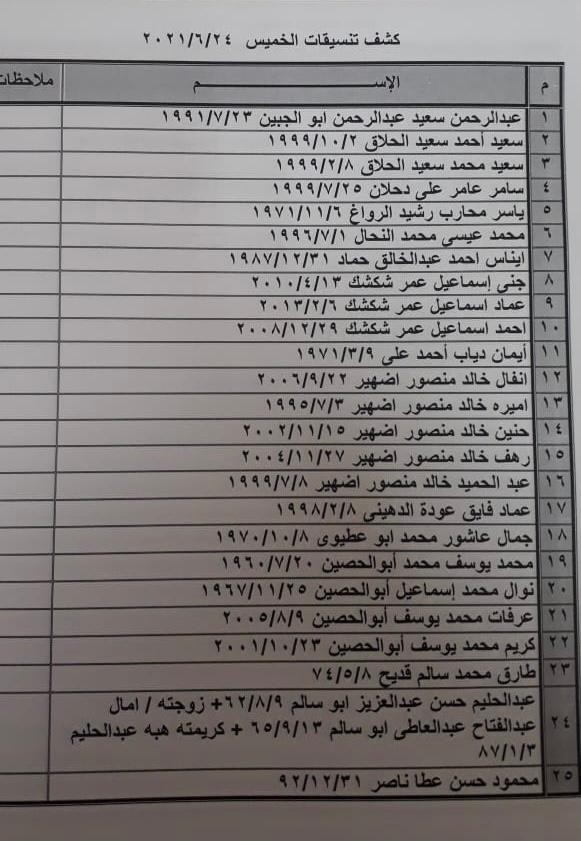 كشف تنسيقات الخميس ٢٠٢١/٦/٢٤
م الإســـــــــم ملاحظات
١ عبدالرحمن سعيد عبدالرحمن ابو الجبين ١٩٩١/٧/٢٣
٢ سعيد أحمد سعيد الحلاق ١٩٩٩/١٠/٢
٣ سعيد محمد سعيد الحلاق ١٩٩٩/٢/٨
٤ سامر عامر على دحلان ١٩٩٩/٧/٢٥
٥ ياسر محارب رشيد الرواغ ١٩٧١/١١/٦
٦ محمد عيسى محمد النحال ١٩٩٦/٧/١
٧ ايناس احمد عبدالخالق حماد ١٩٨٧/١٢/٣١
٨ جنى إسماعيل عمر شكشك ٢٠١٠/٤/١٣
٩ عماد اسماعيل عمر شكشك ٢٠١٣/٢/٦
١٠ احمد اسماعيل عمر شكشك ٢٠٠٨/١٢/٢٩
١١ أيمان دياب أحمد على ١٩٧١/٣/٩
١٢ انفال خالد منصور اضهير ٢٠٠٦/٩/٢٢
١٣ اميره خالد منصور اضهير ١٩٩٥/٧/٣
١٤ حنين خالد منصور اضهير ٢٠٠٢/١١/١٥
١٥ رهف خالد منصور اضهير ٢٠٠٤/١١/٢٧
١٦ عبد الحميد خالد منصور اضهير ١٩٩٩/٧/٨
١٧ عماد فايق عودة الدهينى ١٩٩٨/٢/٨
١٨ جمال عاشور محمد ابو عطيوى ١٩٧٠/١٠/٨
١٩ محمد يوسف محمد أبوالحصين ١٩٦٠/٧/٢٠
٢٠ نوال محمد إسماعيل أبوالحصين ١٩٦٧/١١/٢٥
٢١ عرفات محمد يوسف أبوالحصين ٢٠٠٥/٨/٩
٢٢ كريم محمد يوسف أبوالحصين ٢٠٠١/١٠/٢٣
٢٣ طارق محمد سالم قديح ٧٤/٥/٨
عبدالحليم حسن عبدالعزيز ابو سالم ٦٢/٨/٩+ زوجته / امال
٢٤ عبدالفتاح عبدالعاطى ابو سالم ٦٥/٩/١٣ + كريمته هبه عبدالحليم
٨٧/١/٣
٢٥ محمود حسن عطا ناصر ٩٢/١٢/٣١